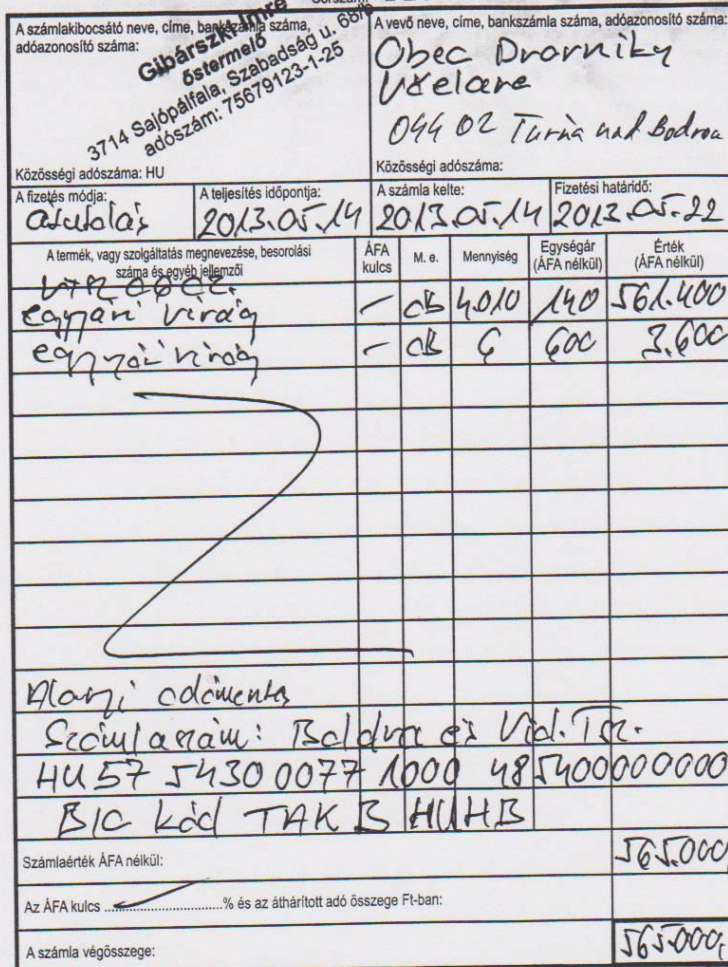 A számlakibocsátó neve, címe, bankszámla száma,
adóazonosító száma:
Gibárszki Imre
őstermelő
3714 Sajópálfala, Szabadság u. 66/a
adószám: 75679123-1-25
Közösségi adószáma: HU
A vevő neve, címe, bankszámla száma, adóazonosító száma:
Obec Dvorniky
Včelare
044 02 Turňa nad Bodvou
Közösségi adószáma:
A fizetés módja:
átutalás
A teljesítés időpontja:
2013.05.14
A számla kelte:
2013.05.14
Fizetési határidő:
2013.05.22
A termék, vagy szolgáltatás megnevezése, besorolási
száma és egyéb jellemzői
ÁFA
kulcs
M. e.
Mennyiség
Egységár
(ÁFA nélkül)
Érték
(ÁFA nélkül)
VTR 0602.
egynyári virág - db 4.010 140 561.400
egynyári virág - db 6 600 3.600
Alanyi adómentes
Számlaszám: Boldva és Vid. Tsz.
HU57 5430 0077 1000 48 5400000000
BIC kód TAK B HUHB
Számlaérték ÁFA nélkül: 565.000
Az ÁFA kulcs ..............................% és az áthárított adó összege Ft-ban:
A számla végösszege: 565.000,